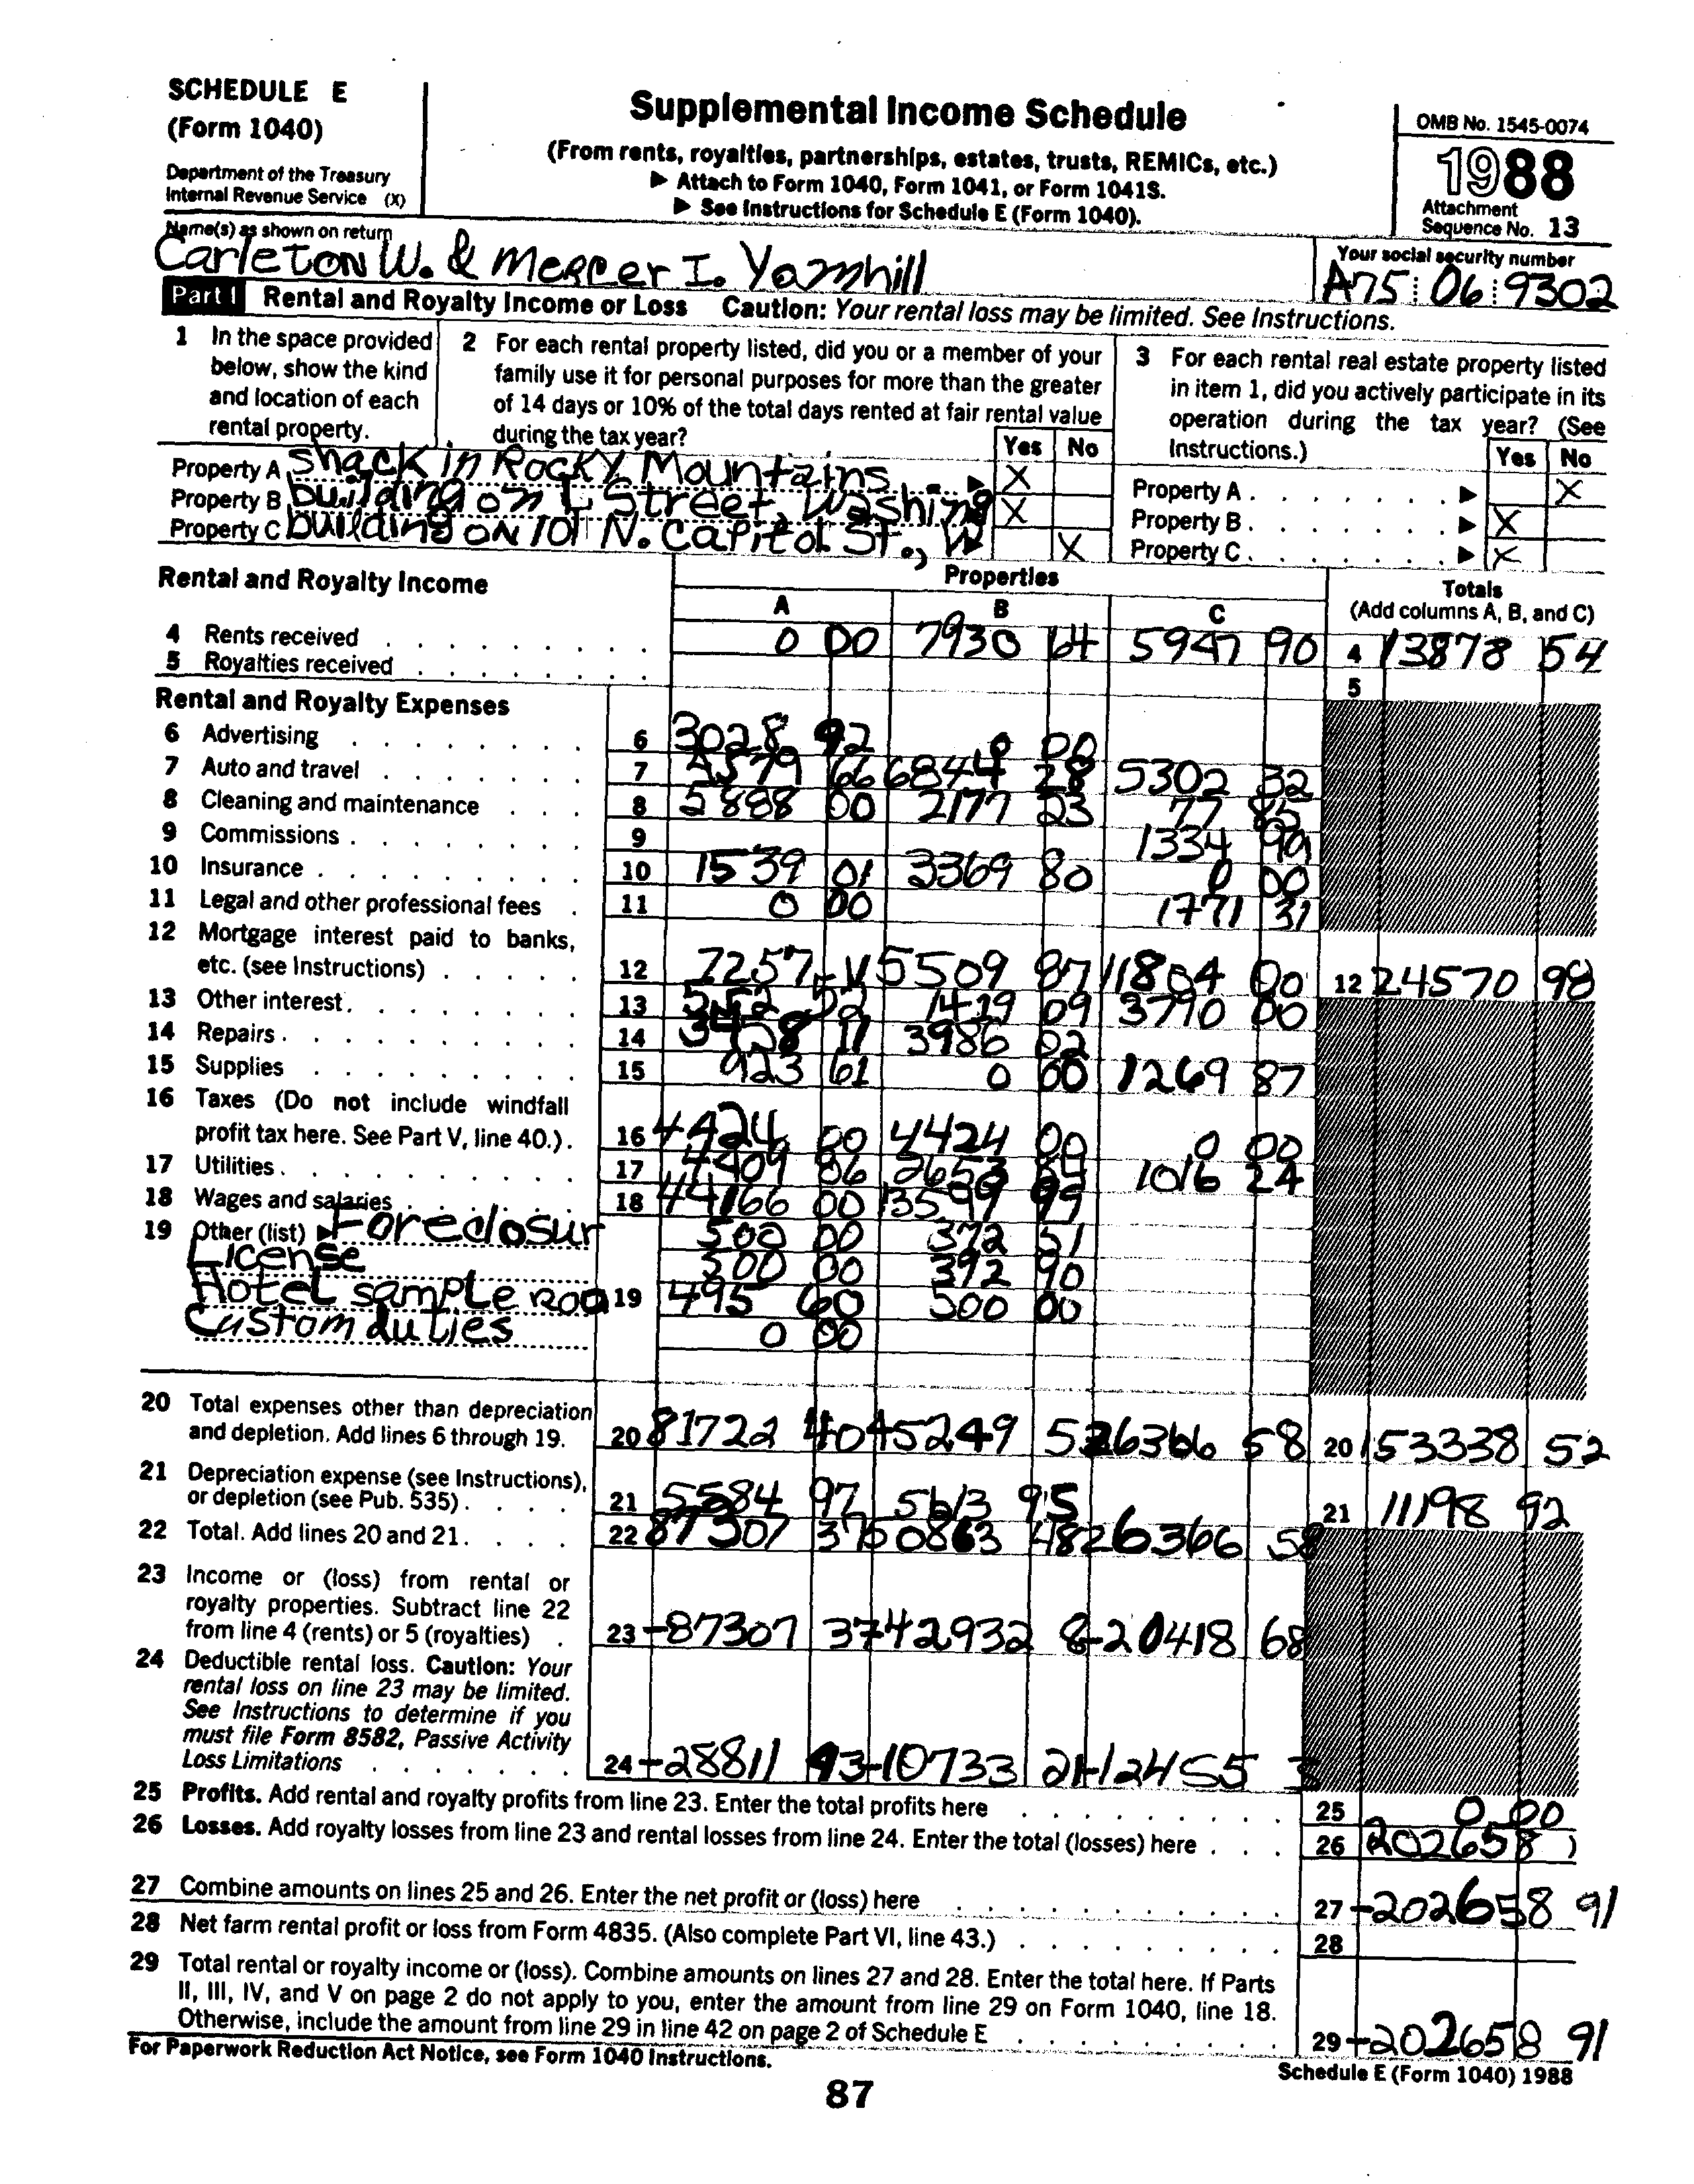 SCHEDULE E
(Form 1040)
Department of the Treasury
Internal Revenue Service (X)
Supplemental Income Schedule
(From rents, royalties, partnerships, estates, trusts, REMICs, etc.)
▶ Attach to Form 1040, Form 1041, or Form 1041S.
▶ See Instructions for Schedule E (Form 1040).
OMB No. 1545-0074
1988
Attachment
Sequence No. 13
Name(s) as shown on return
Carleton W. & Mercer I. Yamhill
Your social security number
A75 06 9302
Part I Rental and Royalty Income or Loss Caution: Your rental loss may be limited. See Instructions.
1 In the space provided
below, show the kind
and location of each
rental property.
2 For each rental property listed, did you or a member of your
family use it for personal purposes for more than the greater
of 14 days or 10% of the total days rented at fair rental value
during the tax year?
Yes No
3 For each rental real estate property listed
in item 1, did you actively participate in its
operation during the tax year? (See
Instructions.)
Yes No
Property A shack in Rocky Mountains ▶ X
Property B building on L Street, Washing X
Property C building on 101 N. Capitol St., W X
Property A . . . . . . . ▶ X
Property B . . . . . . . ▶ X
Property C . . . . . . . ▶ X
Rental and Royalty Income
Properties
A B C
Totals
(Add columns A, B, and C)
4 Rents received 0 00 7930 64 5947 90 4 13878 54
5 Royalties received 5
Rental and Royalty Expenses
6 Advertising 6 3028 92 0 00
7 Auto and travel 7 4579 66 6844 28 5302 32
8 Cleaning and maintenance 8 5888 00 2177 23 77 85
9 Commissions 9 1334 99
10 Insurance 10 1539 01 3369 80 0 00
11 Legal and other professional fees 11 0 00 1771 31
12 Mortgage interest paid to banks,
etc. (see Instructions) 12 7257 5509 87 11804 00 12 24570 98
13 Other interest 13 1419 09 3790 00
14 Repairs 14 3458 11 3986 02
15 Supplies 15 923 61 0 00 1269 87
16 Taxes (Do not include windfall
profit tax here. See Part V, line 40.) 16 4424 00 4424 00 0 00
17 Utilities 17 4409 06 2653 1016 24
18 Wages and salaries 18 44166 00 13599 99
19 Other (list) ▶ Foreclosur 500 00 372 51
License 500 00 392 90
Hotel sample roo 19 495 60 500 00
Custom duties 0 00
20 Total expenses other than depreciation
and depletion. Add lines 6 through 19. 20 81722 40 45249 53 26366 58 20 153338 52
21 Depreciation expense (see Instructions),
or depletion (see Pub. 535) 21 5584 97 5613 95 21 11198 92
22 Total. Add lines 20 and 21 22 87307 37 50863 48 26366 58
23 Income or (loss) from rental or
royalty properties. Subtract line 22
from line 4 (rents) or 5 (royalties) 23 -87307 37 -42932 8 -20418 68
24 Deductible rental loss. Caution: Your
rental loss on line 23 may be limited.
See Instructions to determine if you
must file Form 8582, Passive Activity
Loss Limitations 24 -28811 43 -10733 21 -12455 3
25 Profits. Add rental and royalty profits from line 23. Enter the total profits here 25 0 00
26 Losses. Add royalty losses from line 23 and rental losses from line 24. Enter the total (losses) here 26 202658 )
27 Combine amounts on lines 25 and 26. Enter the net profit or (loss) here 27 -202658 91
28 Net farm rental profit or loss from Form 4835. (Also complete Part VI, line 43.) 28
29 Total rental or royalty income or (loss). Combine amounts on lines 27 and 28. Enter the total here. If Parts
II, III, IV, and V on page 2 do not apply to you, enter the amount from line 29 on Form 1040, line 18.
Otherwise, include the amount from line 29 in line 42 on page 2 of Schedule E 29 -202658 91
For Paperwork Reduction Act Notice, see Form 1040 Instructions.
Schedule E (Form 1040) 1988
87